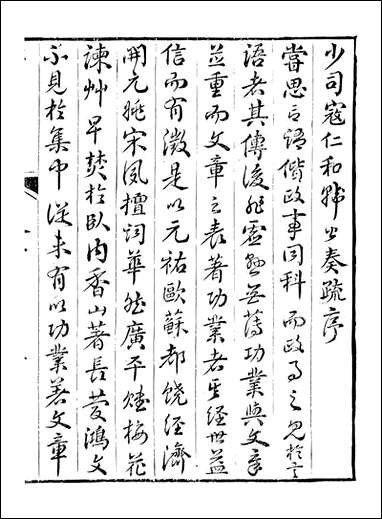 少司寇仁和韓公奏疏序
嘗思言語偕政事同科而政事之見於言
語者其傳後非虛無以功業與文章
並重而文章之表著功業者至經世益
信而有徵是以元祐歐蘇都饒經濟
開元姚宋夙擅詞華然廣平媿梅花
諫草早焚於臥內香山著長慶鴻文
不見於集中從来有以功業若文章